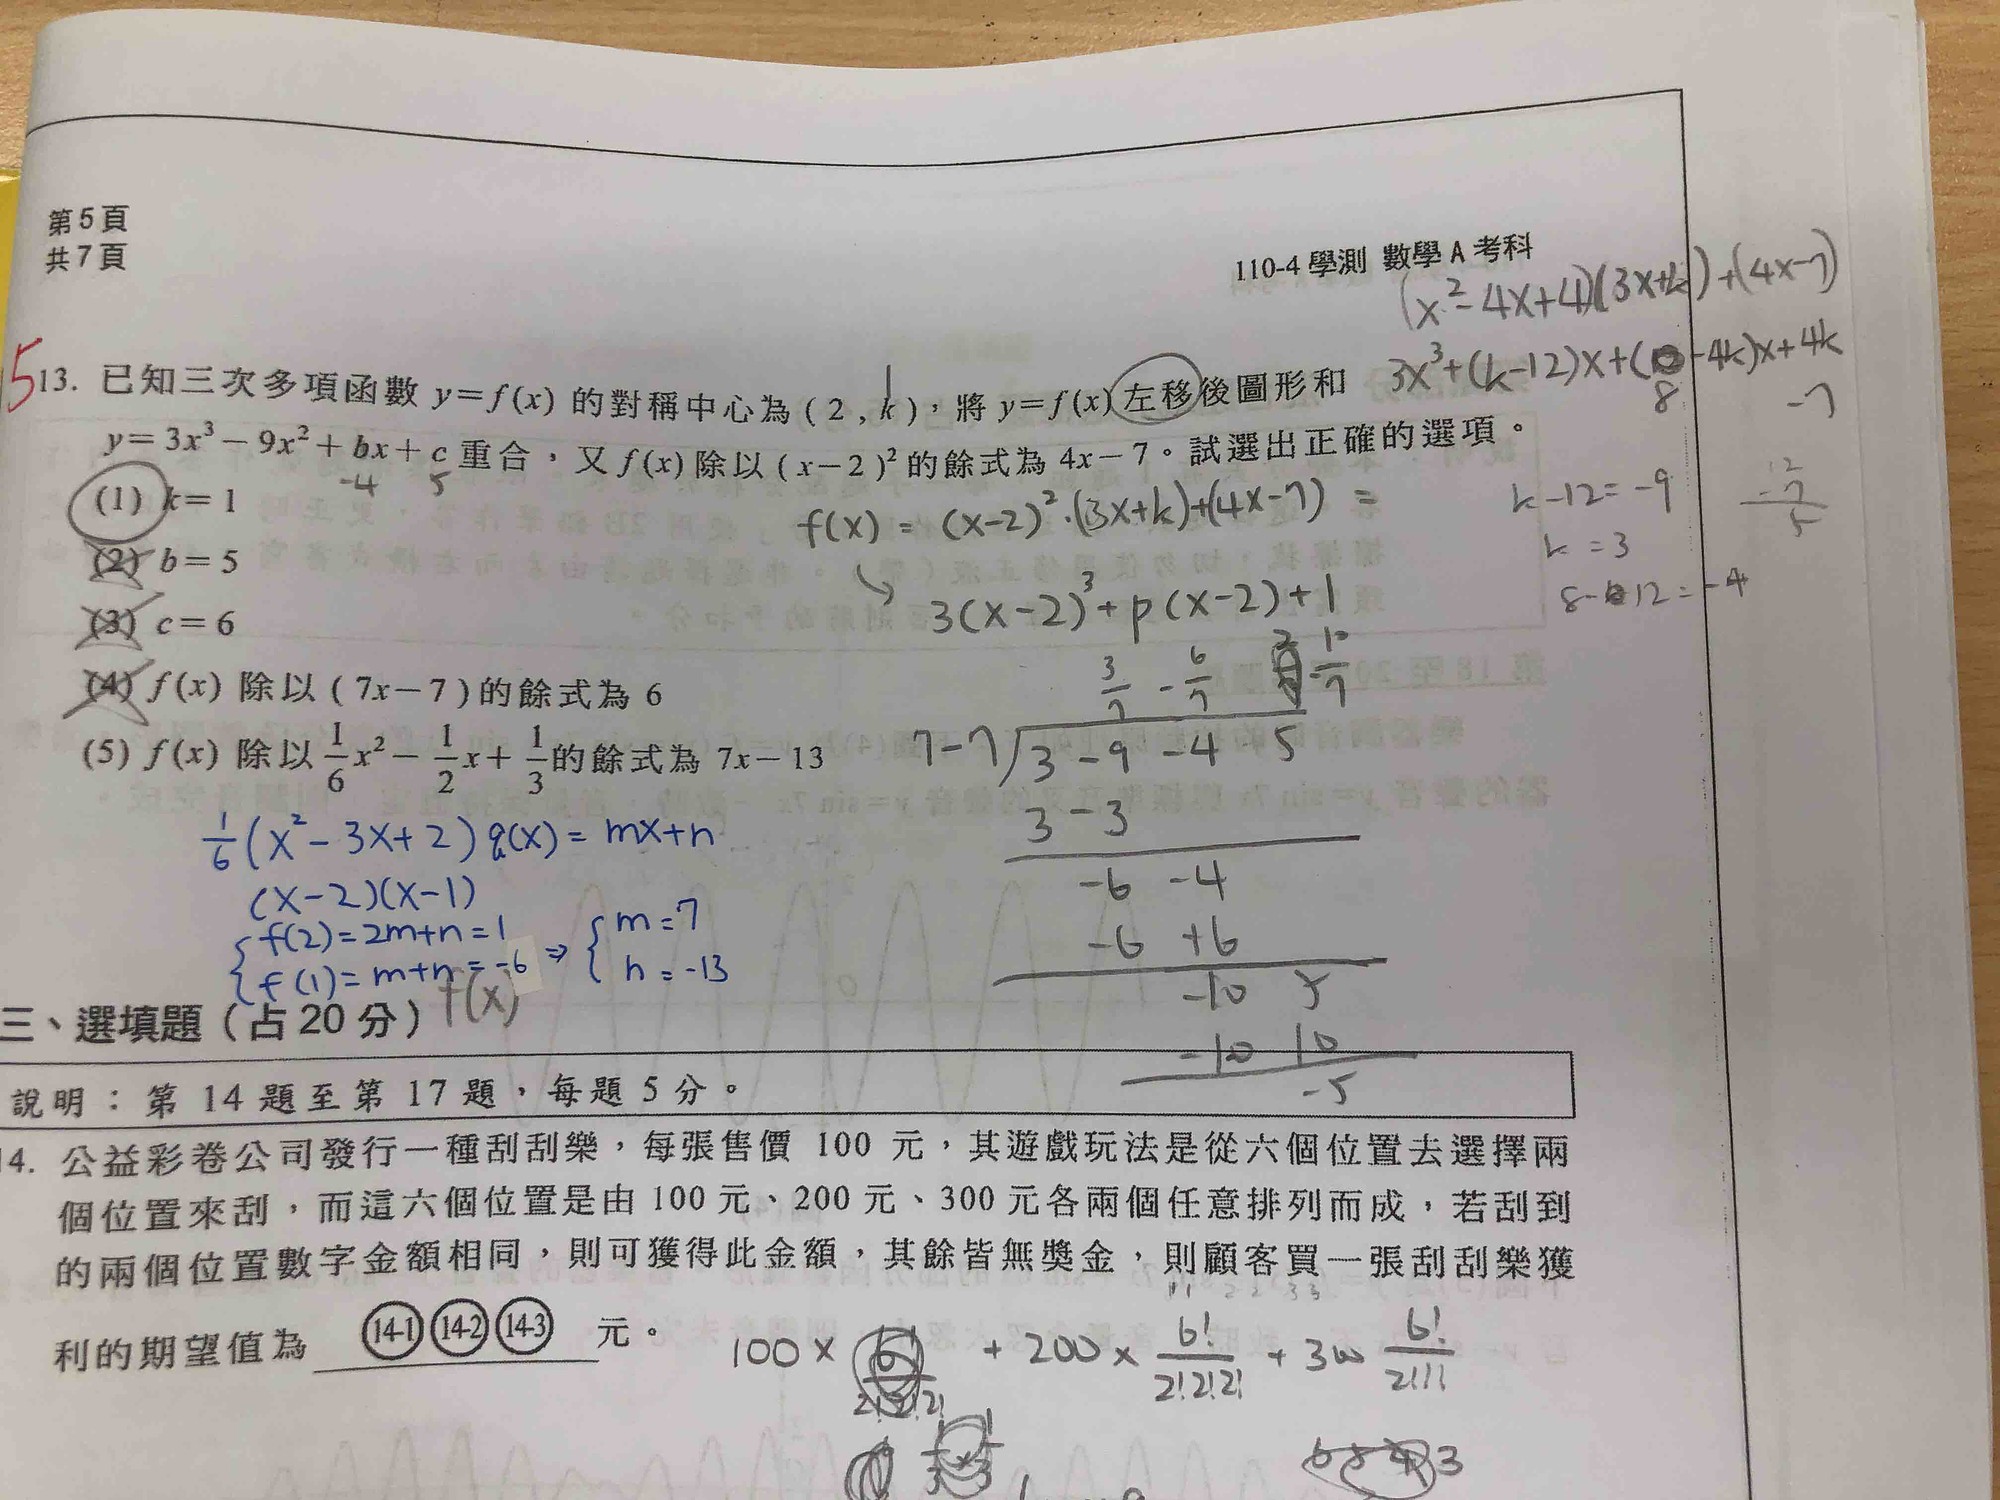 第5頁
共7頁
110-4學測 數學A考科
(x²-4x+4)(3x+k)+(4x-7)
3x³+(k-12)x+(-4k)x+4k
8 -7
5
13. 已知三次多項函數 y=f(x) 的對稱中心為 ( 2 , k ),將 y=f(x) 左移後圖形和
1
y=3x³-9x²+bx+c 重合,又 f(x) 除以 (x-2)² 的餘式為 4x-7。試選出正確的選項。
-4 5
(1) k=1
(2) b=5
(3) c=6
(4) f(x) 除以 ( 7x-7 ) 的餘式為 6
(5) f(x) 除以 1/6x²-1/2x+1/3 的餘式為 7x-13
f(x) = (x-2)²·(3x+k)+(4x-7) =
↘ 3(x-2)³+p(x-2)+1
k-12=-9
k=3
8-12=-4
12
-7
5
3/7 -6/7 -10/7
7-7 3-9-4 5
3-3
-6 -4
-6 +6
-10 5
-10 10
-5
1/6(x²-3x+2)q(x)=mx+n
(x-2)(x-1)
f(2)=2m+n=1
f(1)=m+n=-6
⇒ m=7
n=-13
f(x)
三、選填題(占20分)
說明:第 14 題至第 17 題,每題 5 分。
14. 公益彩卷公司發行一種刮刮樂,每張售價 100 元,其遊戲玩法是從六個位置去選擇兩
個位置來刮,而這六個位置是由 100 元、200 元、300 元各兩個任意排列而成,若刮到
的兩個位置數字金額相同,則可獲得此金額,其餘皆無獎金,則顧客買一張刮刮樂獲
利的期望值為 14-1 14-2 14-3 元。
11 22 33
100× 6!/2!2!2! +200× 6!/2!2!2! +300 6!/2!1!